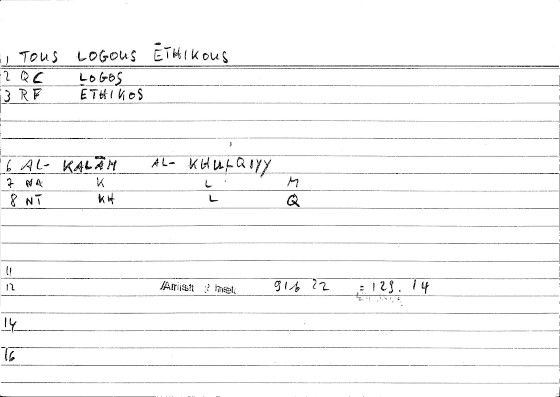 1 TOUS LOGOUS ĒTHIKOUS
2 QC LOGOS
3 RF ĒTHIKOS
6 AL- KALĀM AL- KHULQIYY
7 NA K L M
8 NT KH L Q
11
12 916 22 = 129.14
14
16